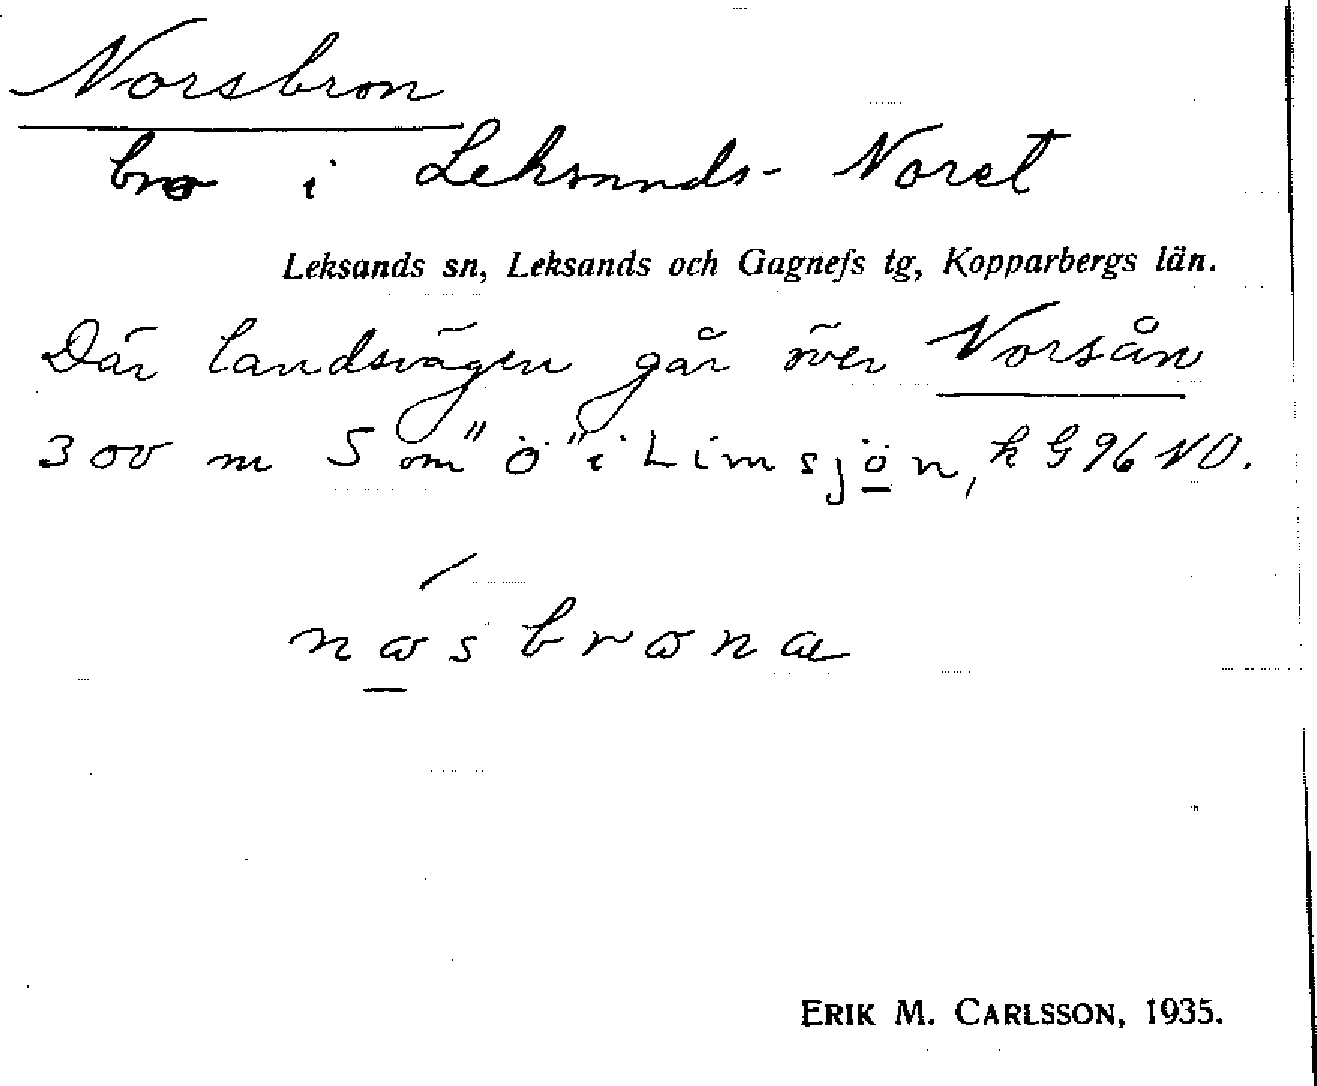 Norsbron
bro i Leksands-Noret
Leksands sn, Leksands och Gagnefs tg, Kopparbergs län.
Där landsvägen går över Norsån
300 m S om "ö" i Limsjön, k G 96 NO.
ERIK M. CARLSSON, 1935.